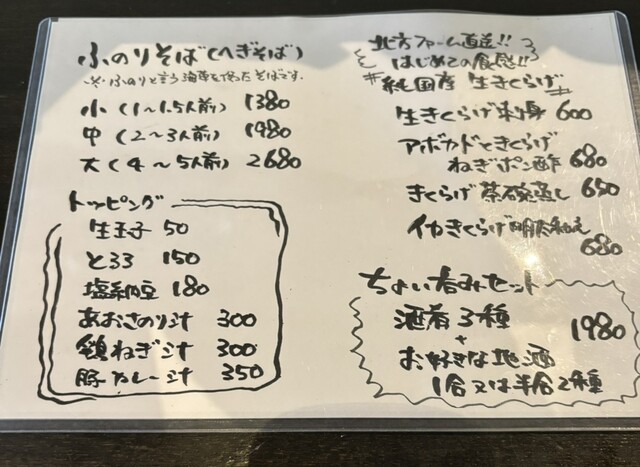 ふのりそば(へぎそば)
※ふのりと言う海草を使ったそばです。
小(1〜1.5人前) 1380
中(2〜3人前) 1980
大(4〜5人前) 2680
トッピング
生玉子 50
とろろ 150
塩納豆 180
あおさのり汁 300
鶏ねぎ汁 300
豚カレー汁 350
北方ファーム直送!!
はじめての食感!!
#純国産 生きくらげ#
生きくらげ刺身 600
アボカドときくらげ
ねぎポン酢 680
きくらげ茶碗蒸し 650
イカきくらげ明太和え
680
ちょい呑みセット
酒肴3種 1980
+
お好きな地酒
1合又は半合2種